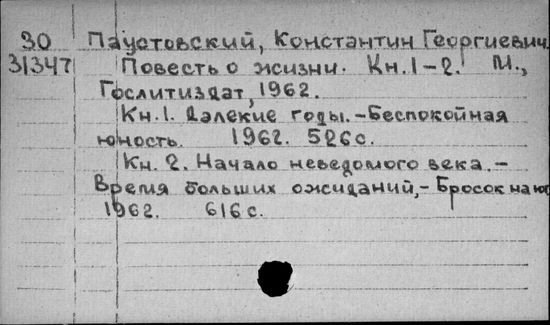 30 Паустовский, Константин Георгиевич.
31347 Повесть о жизни. Кн.1-2. М.,
Гослитиздат, 1962.
Кн.1. Далекие годы.-Беспокойная
юность. 1962. 526с.
Кн. 2. Начало неведомого века.-
Время больших ожиданий,-Бросок на юг
1962. 616с.